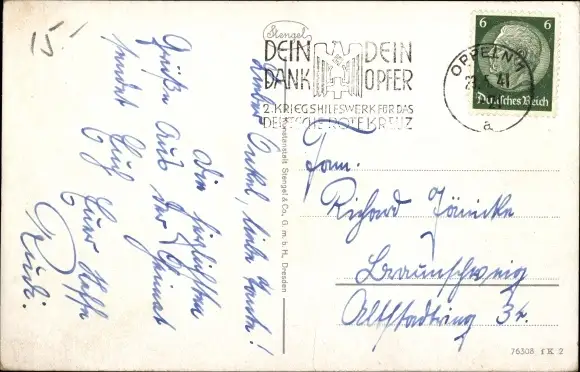 15.-
Lieber Onkel, liebe Tante!
Die herzlichsten
Grüße aus der Heimat
sendet Euch Euer Neffe
Rudi.
Stengel
DEIN DEIN
DANK OPFER
2. KRIEGSHILFSWERK FÜR DAS
DEUTSCHE ROTE KREUZ
OPPELN 1
41
a
6 6
Deutsches Reich
Kunstanstalt Stengel & Co., G. m. b. H., Dresden
Fam.
Richard Jänicke
Braunschweig
Altstadtring 34.
76308 f K 2